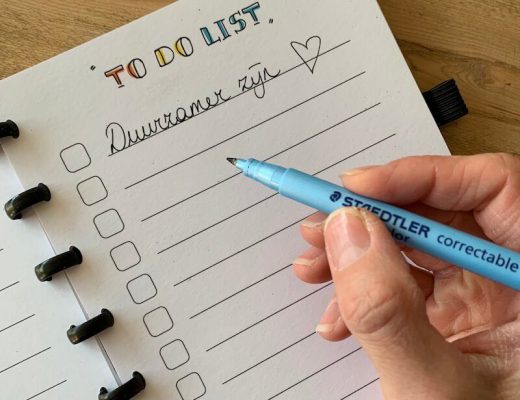 TO DO LIST
Duurzamer zijn ♡
STAEDTLER correctable